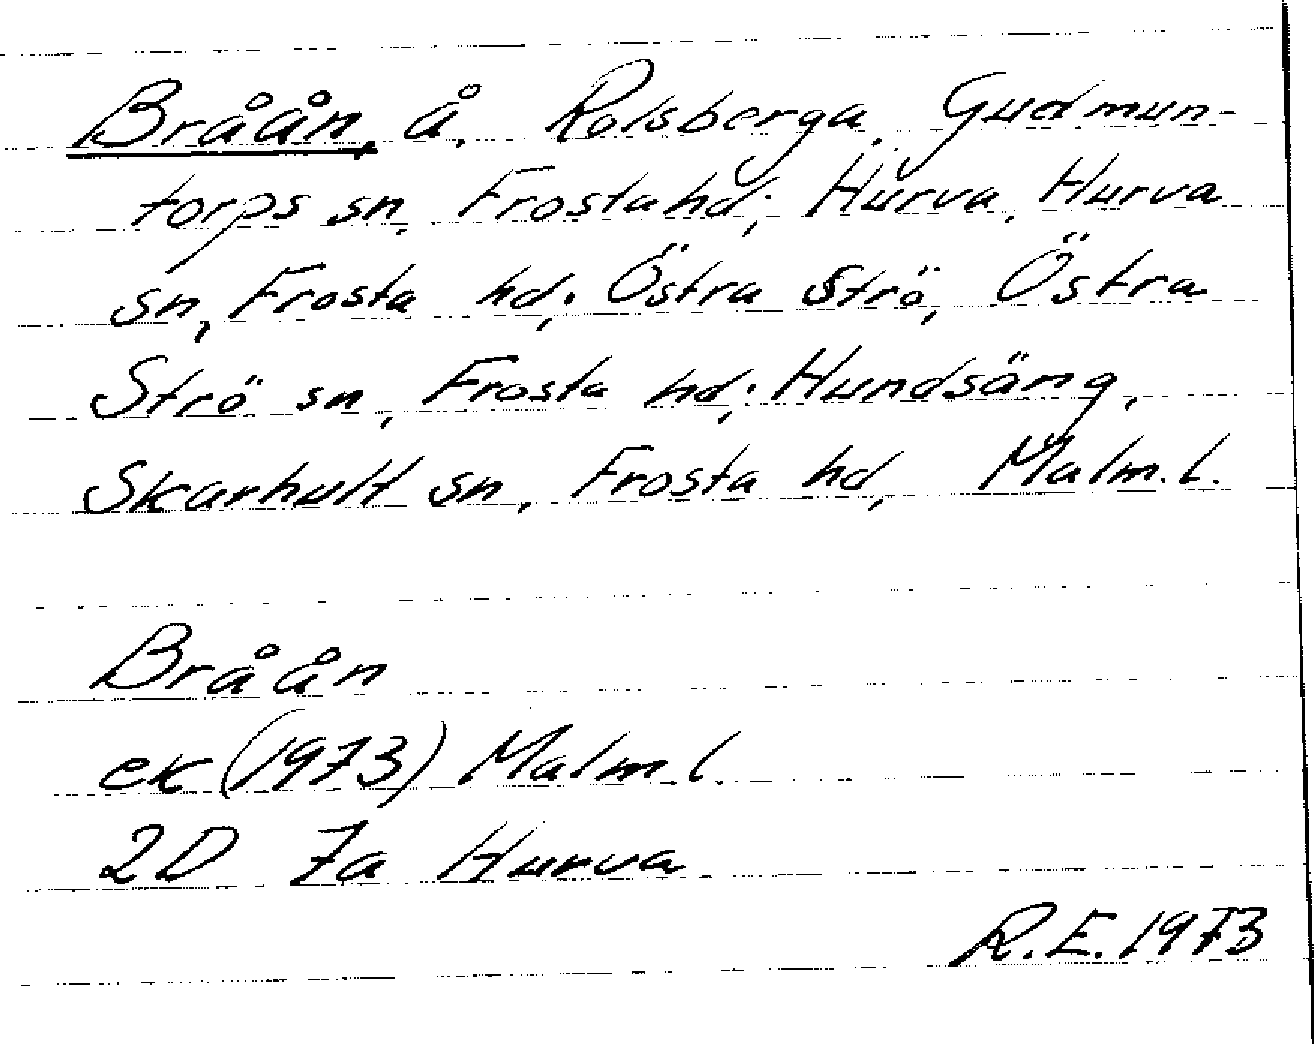 Bråån, å, Rolsberga, Gudmun-
torps sn, Frosta hd; Hurva, Hurva
sn, Frosta hd; Östra Strö, Östra
Strö sn, Frosta hd; Hundsäng,
Skarhult sn, Frosta hd, Malm.l.
Bråån
ek (1973) Malm.l.
2D 7a Hurva
R.E. 1973